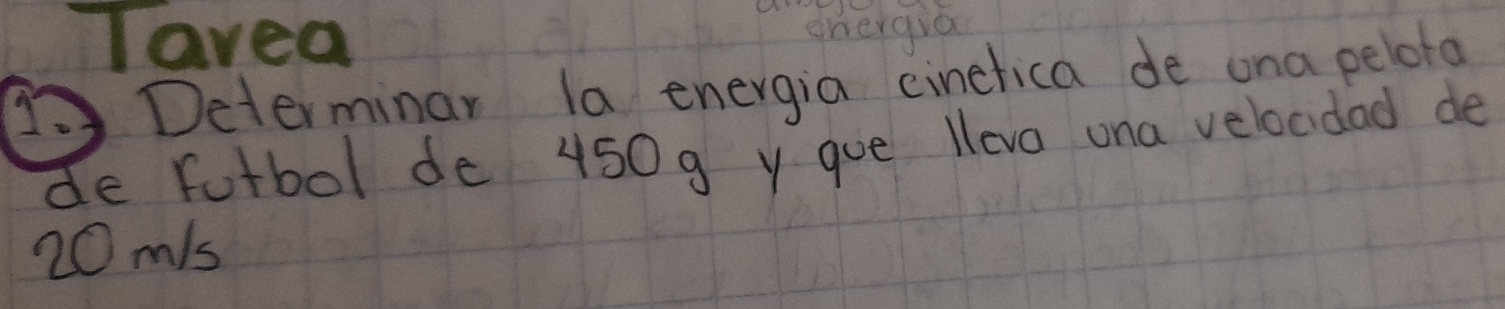 energia
Tarea
1.- Determinar la energia cinetica de una pelota
de futbol de 450 g y que lleva una velocidad de
20 m/s